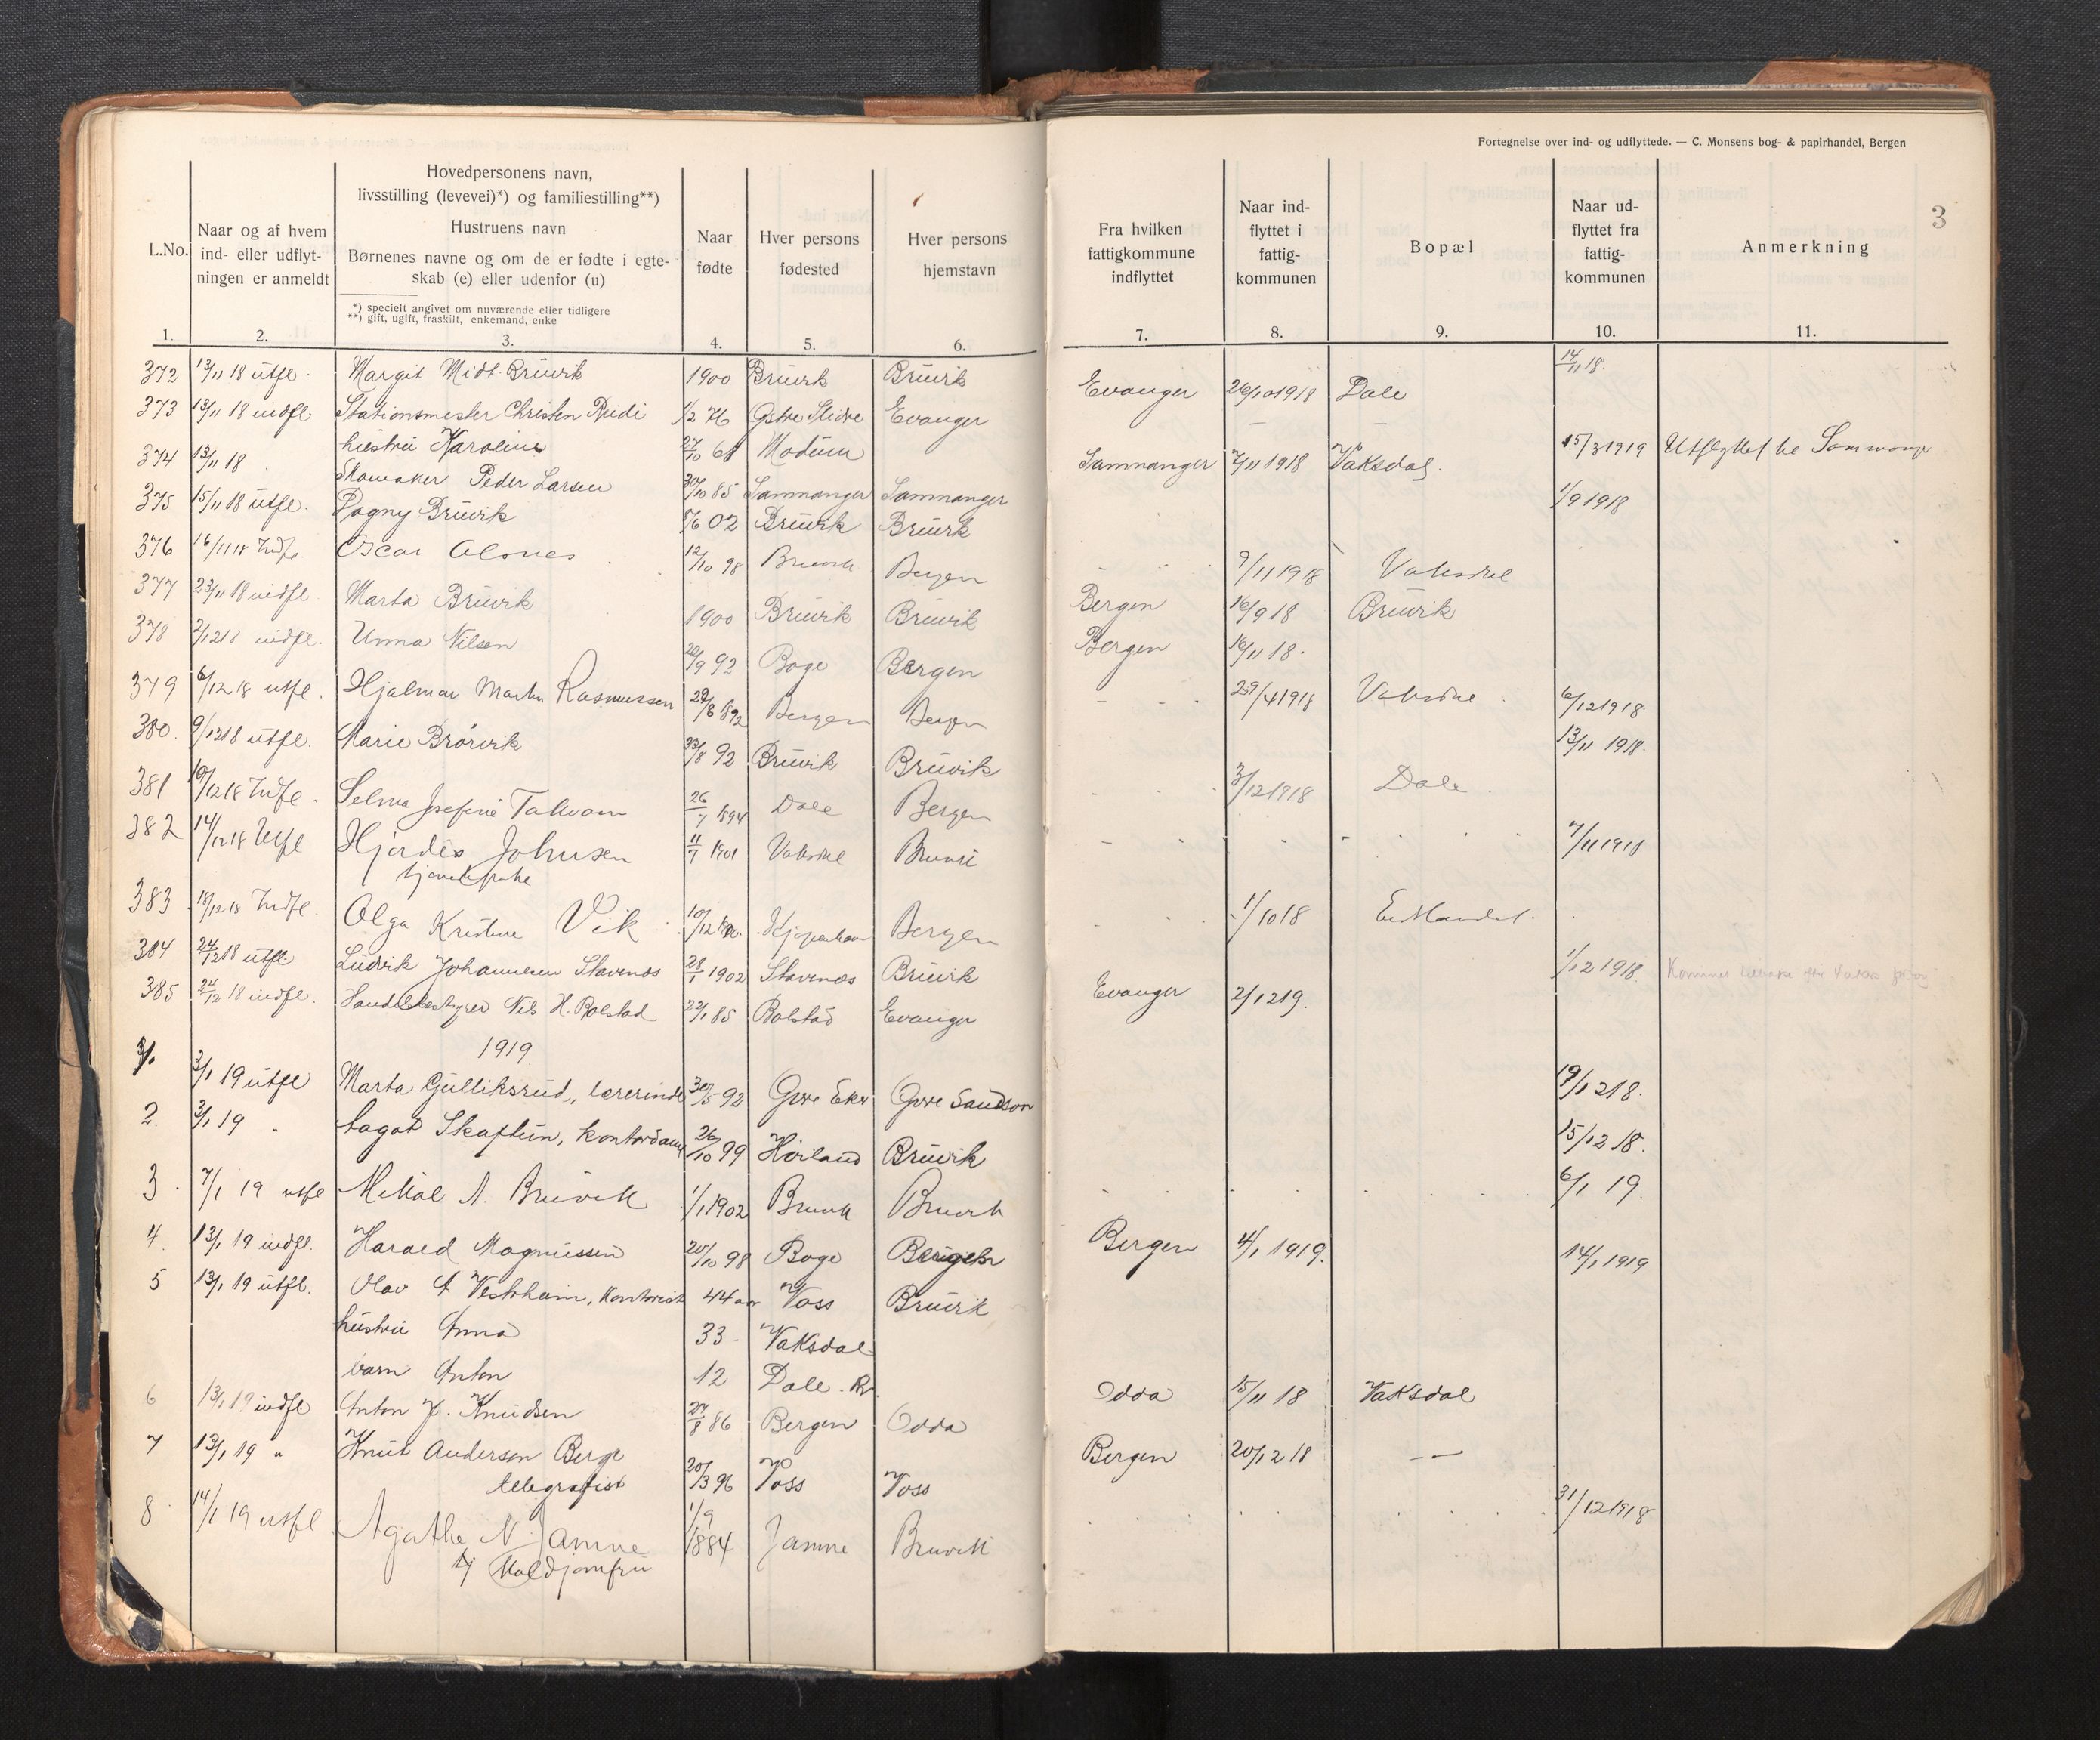 Fortegnelse over ind- og udflyttede. — C. Monsens bog- & papirhandel, Bergen
3
L.No.
Naar og af hvem ind- eller udflyt-ningen er anmeldt
Hovedpersonens navn,
livsstilling (levevei)*) og familiestilling**)
Hustruens navn
Børnenes navne og om de er fødte i egte-
skab (e) eller udenfor (u)
*) specielt angivet om nuværende eller tidligere
**) gift, ugift, fraskilt, enkemand, enke
Naar fødte
Hver persons fødested
Hver persons hjemstavn
Fra hvilken fattigkommune indflyttet
Naar ind-flyttet i fattig-kommunen
Bopæl
Naar ud-flyttet fra fattig-kommunen
Anmerkning
1. 2. 3. 4. 5. 6. 7. 8. 9. 10. 11.
372 13/11 18 utfl. Margit Midt. Bruvik 1900 Bruvik Bruvik 14/11 18.
373 13/11 18 indfl. Stationsmester Christen 1/2 76 Østre Slidre Evanger Evanger 26/10 1918 Dale
hustru Karoline 27/10 61 Modum
374 13/11 18 Skomaker Peder Larsen 30/10 85 Samnanger Samnanger Samnanger 7/11 1918 Vaksdal. 15/3 1919 Utflyttet
375 15/11 18 utfl. Dagny Bruvik 02 Bruvik Bruvik 1/9 1918
376 16/11 18 Indfl. Oscar 12/10 98 Bruvik Bergen 9/11 1918 Vaksdal
377 23/11 18 indfl. Marta Bruvik 1900 Bruvik Bruvik Bergen 16/9 18 Bruvik
378 2/12 18 indfl. Unna Nilsen 20/9 92 Boge Bergen Bergen 16/11 18.
379 6/12 18 utfl. Hjalmar Martin Rasmussen 1892 Bergen Bergen 29/4 1918 Vaksdal 6/12 1918
380. 9/12 18 utfl. Marie Brørvik 92 Bruvik Bruvik 13/11 1918.
381 10/12 18 Indfl. Selma Josefine Takvam 26/7 1894 Dale Bergen 3/12 1918 Dale
382 14/12 18 Utfl Hjørdis Johnsen 11/7 1901 Vaksdal Bruvik 7/11 1918
383 18/12 18 Indfl. Olga Kristine Vik 10/12 Kjøpenhavn Bergen 1/10 18
384 24/12 18 utfl Ludvik Johannesen Stavenes 28/1 1902 Stavenes Bruvik 1/12 1918
385 24/12 18 indfl. Handelsbestyrer Nils H. Bolstad 22/1 85 Bolstad Evanger Evanger 2/12 19.
1919
3/1 19 utfl Marta Gulliksrud, lærerinde 30/5 92 Øvre Eker Øvre Sandsvær 19/12 18.
2. 3/1 19 " Aagot Skaftun, kontordame 26/10 99 Bruvik 15/12 18.
3 7/1 19 utfl Mikal A. Bruvik 1/1 1902 Bruvik Bruvik 6/1 19.
4. 13/1 19 indfl. Harald Magnussen 20/10 98 Boge Bergen Bergen 4/1 1919. 14/1 1919
5 13/1 19 utfl. Olav A Vestrheim, kontorist 44 aar Voss Bruvik
hustru Anna 33 - Vaksdal
barn Anton 12 Dale
6 13/1 19 indfl Anton J. Knudsen 86 Bergen Odda Odda 15/11 18 Vaksdal
7 13/1 19 " Knut Andersen Berge 20/3 96 Voss Voss Bergen 20/12 18 —
telegrafist
8 14/1 19 utfl Agathe N Jamne 1/9 1884 Jamne Bruvik 31/12 1918